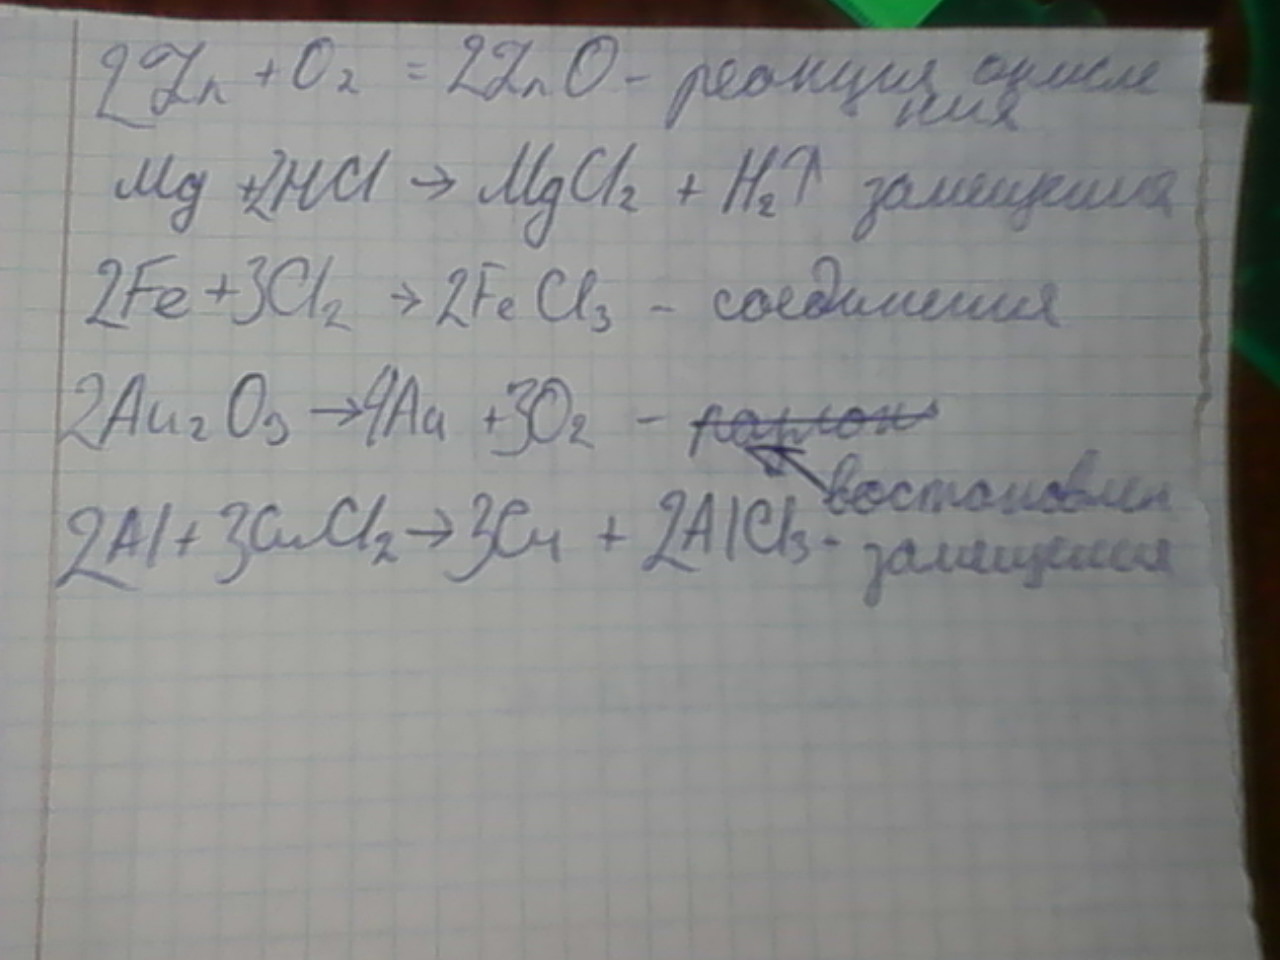 2Zn + O₂ = 2ZnO - реакция окисле
ния
Mg + 2HCl → MgCl₂ + H₂↑ замещения
2Fe + 3Cl₂ → 2FeCl₃ - соединения
2Au₂O₃ → 4Au + 3O₂ -
востановлен
2Al + 3CuCl₂ → 3Cu + 2AlCl₃ - замещения